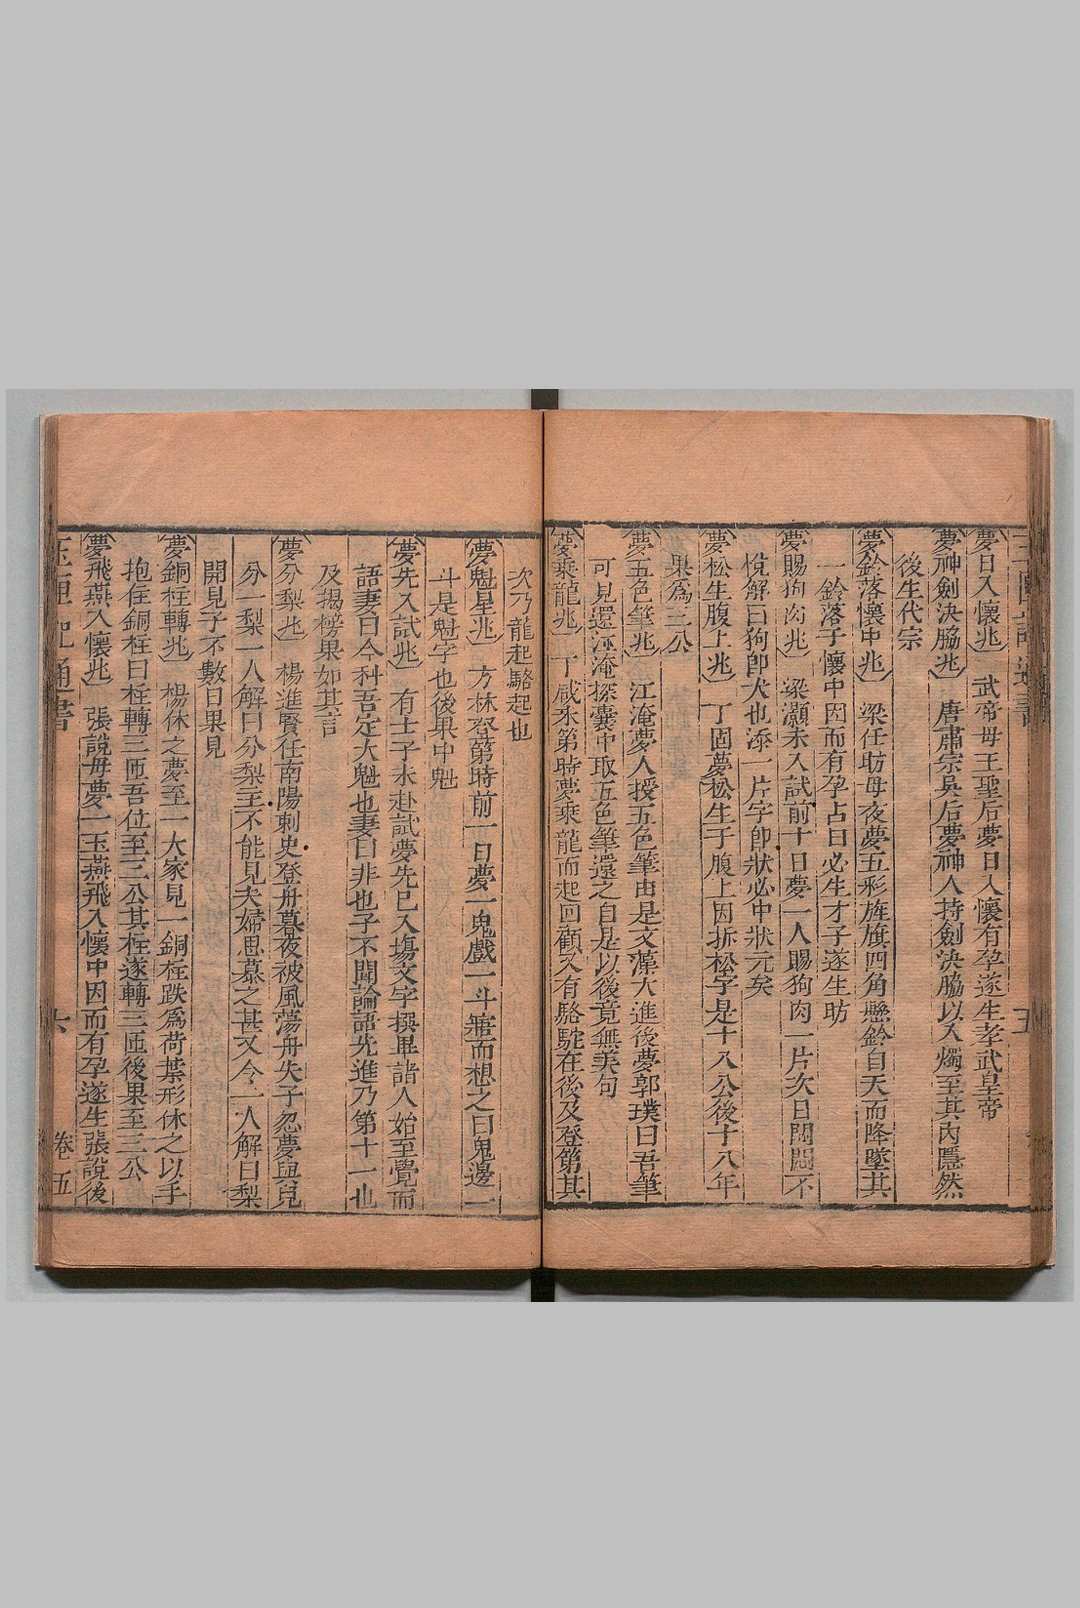 夢日入懷兆 武帝母王聖后夢日入懷有孕遂生孝武皇帝
夢神劍決脇兆 唐肅宗吳后夢神人持劍決脇以入燭至其內隱然
後生代宗
夢鈴落懷中兆 梁任昉母夜夢五彩旌旗四角懸鈴自天而降墜其
一鈴落于懷中因而有孕占曰必生才子遂生昉
夢賜狗肉兆 梁灝未入試前十日夢一人賜狗肉一片次日悶悶不
悅解曰狗卽犬也添一片字卽狀必中狀元矣
夢松生腹上兆 丁固夢松生于腹上因折松字是十八公後十八年
果爲三公
夢五色筆兆 江淹夢人授五色筆由是文藻大進後夢郭璞曰吾筆
可見還淹探囊中取五色筆還之自是以後竟無美句
夢乘龍兆 丁咸未第時夢乘龍而起回顧又有駱駝在後及登第其
次乃龍起駱起也
夢魁星兆 方林登第時前一日夢一鬼戲一斗寤而想之曰鬼邊一
斗是魁字也後果中魁
夢先入試兆 有士子未赴試夢先已入塲文字撰畢諸人始至覺而
語妻曰今科吾定大魁也妻曰非也子不聞論語先進乃第十一也
及揭榜果如其言
夢分梨兆 楊進賢任南陽刺史登舟暮夜被風蕩舟失子忽夢與兒
分一梨一人解曰分梨主不能見夫婦思慕之甚又令一人解曰梨
開見子不數日果見
夢銅柱轉兆 楊休之夢至一大家見一銅柱趺爲荷葉形休之以手
抱住銅柱曰柱轉三匝吾位至三公其柱遂轉三匝後果至三公
夢飛燕入懷兆 張說母夢一玉燕飛入懷中因而有孕遂生張說後
玉匣記通書 六 卷五